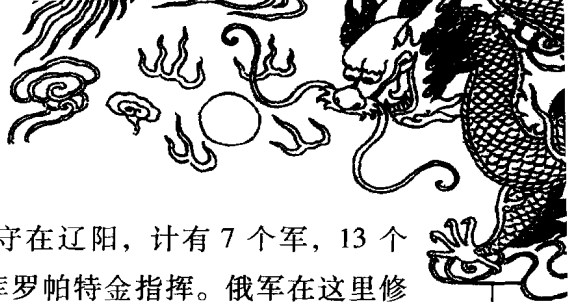 守在辽阳，计有 7 个军，13 个
库罗帕特金指挥。俄军在这里修